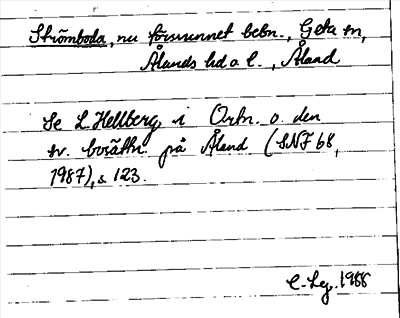 Strömboda, nu försvunnet bebn., Geta sn,
Ålands hd o l., Åland
Se L Hellberg i Ortn. o. den
sv. bosättn. på Åland (SNF 68,
1987), s. 123.
1988